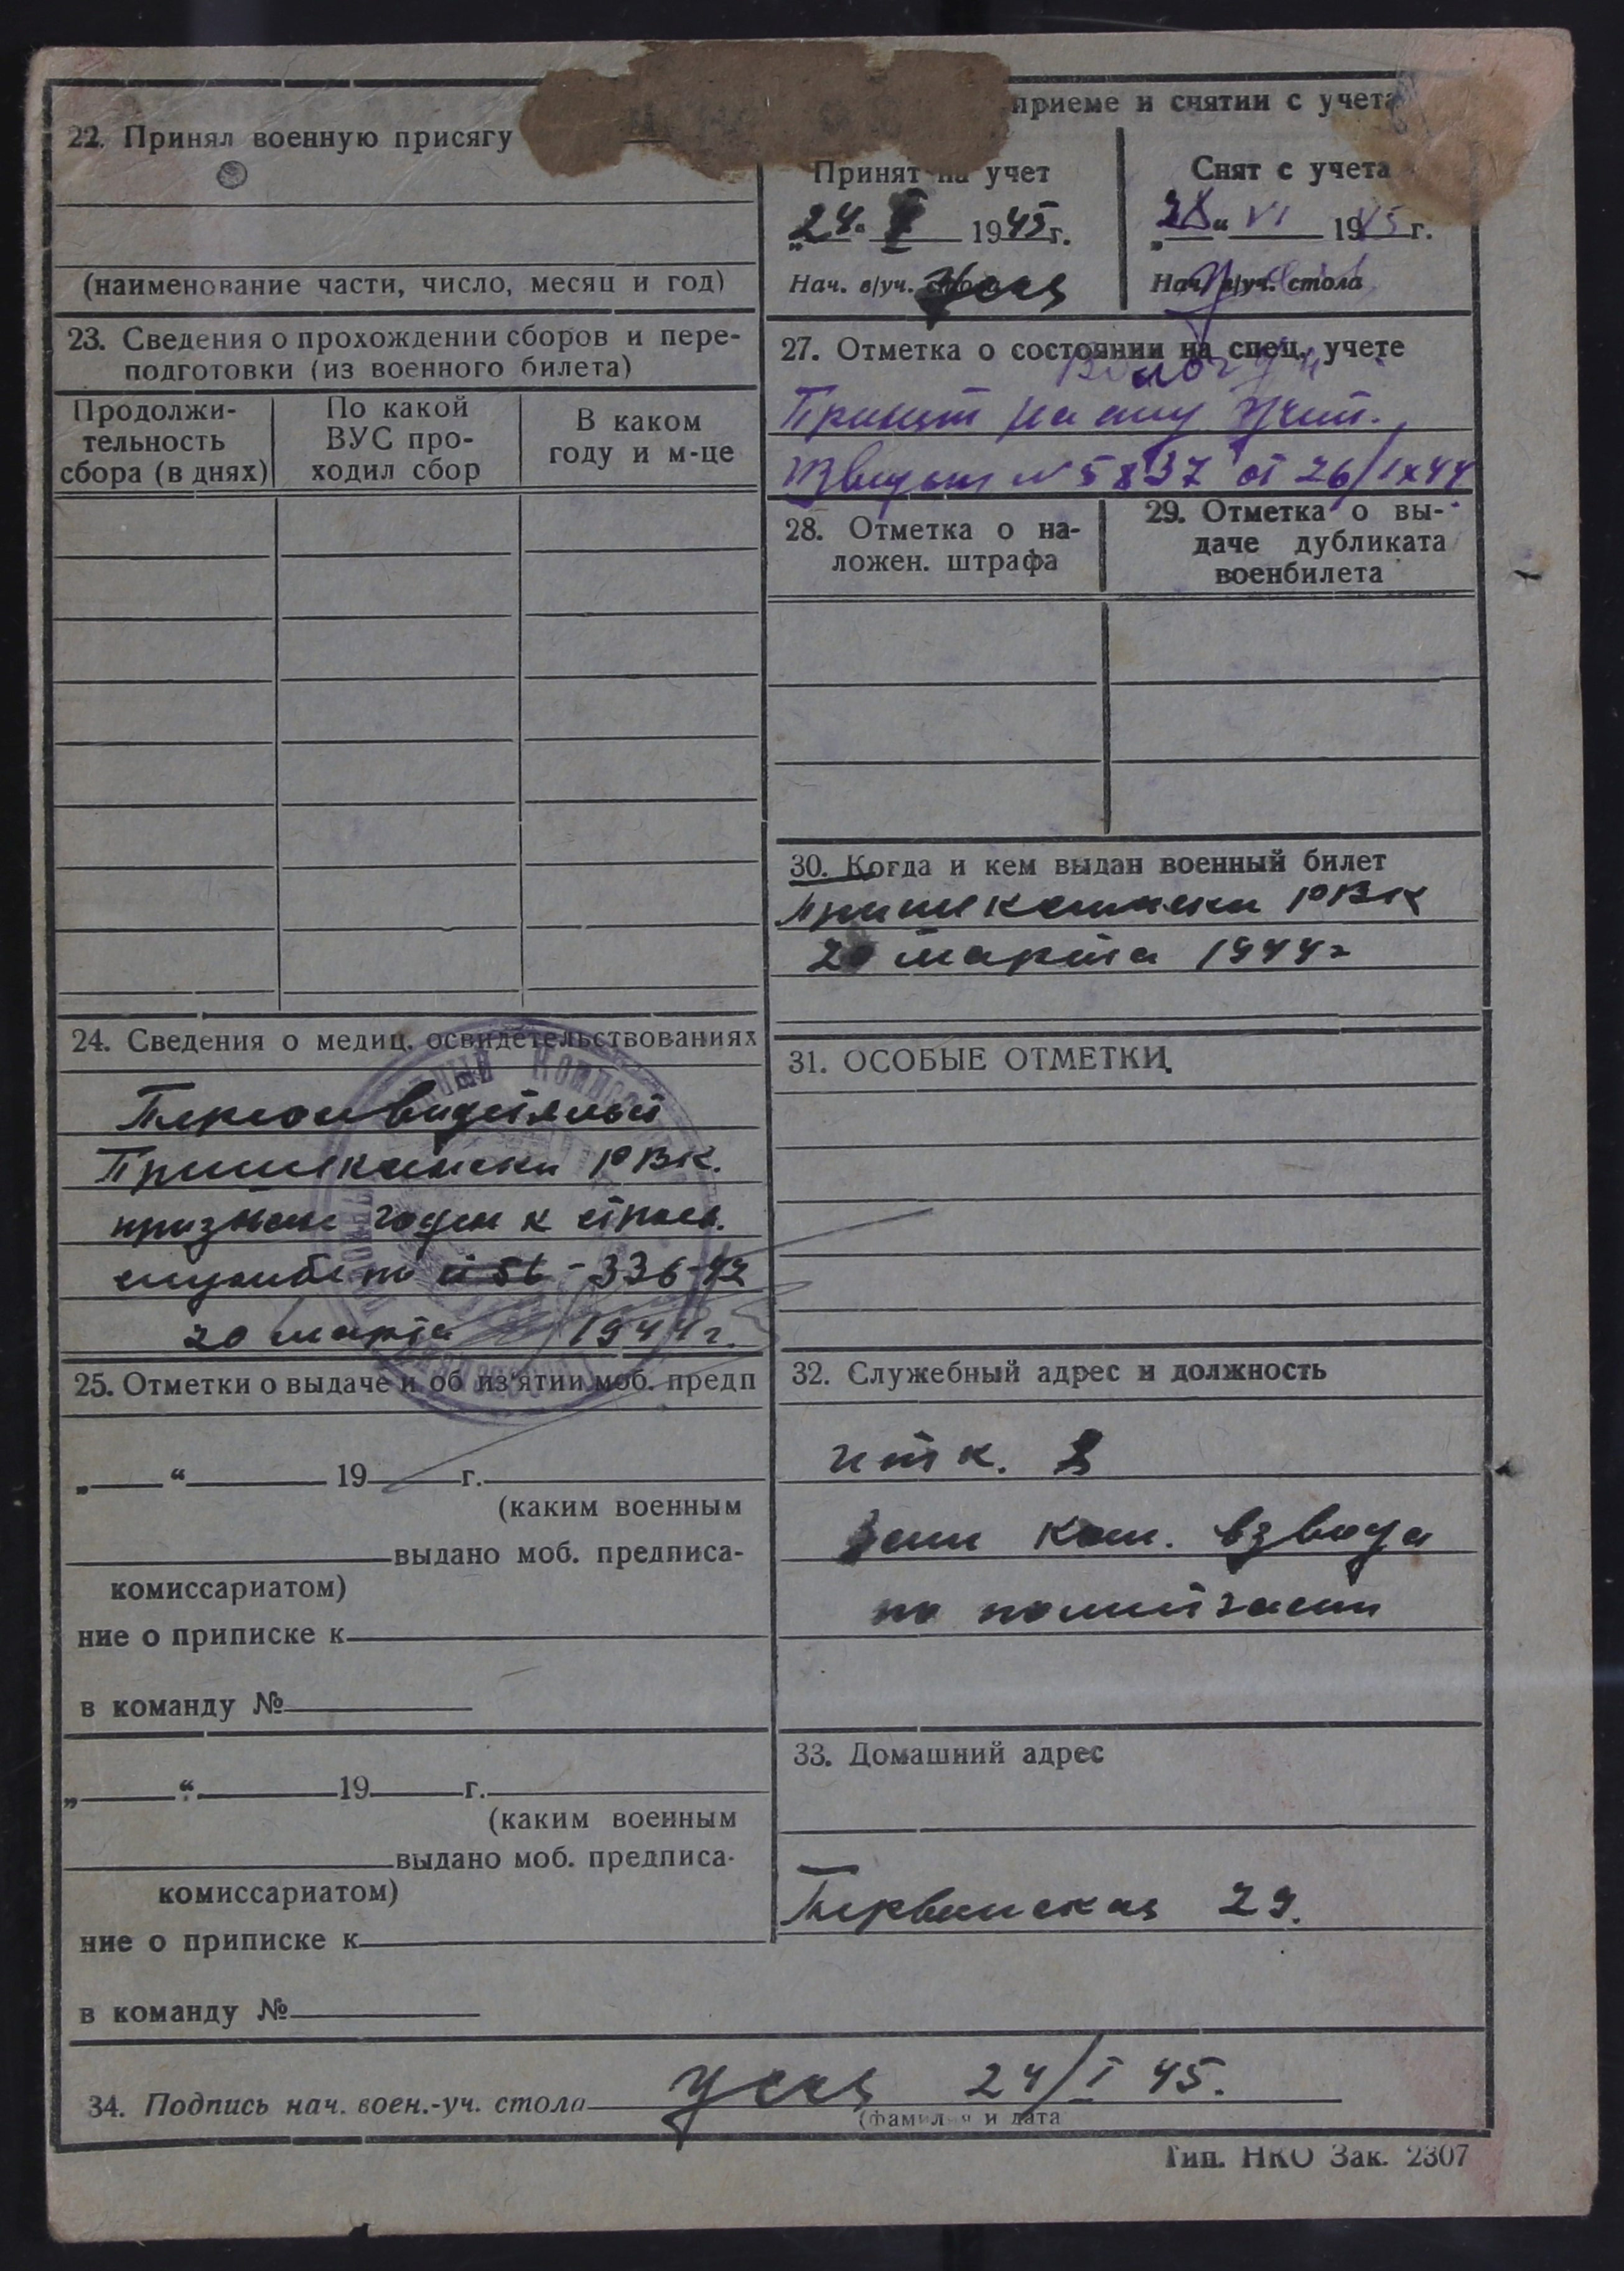 22. Принял военную присягу
(наименование части, число, месяц и год)
23. Сведения о прохождении сборов и пере-
подготовки (из военного билета)
Продолжи-
тельность
сбора (в днях)
По какой
ВУС про-
ходил сбор
В каком
году и м-це
24. Сведения о медиц. освидетельствованиях
РВК.
признан годен к строев.
службе по - 336-42
20 марта 1944 г.
25. Отметки о выдаче и об из'ятии моб. предп
„ “ 19 г.
(каким военным
выдано моб. предписа-
комиссариатом)
ние о приписке к
в команду №
„ “ 19 г.
(каким военным
выдано моб. предписа-
комиссариатом)
ние о приписке к
в команду №
приеме и снятии с учета
Принят на учет
„24“ 1945 г.
Нач. в/уч.
Снят с учета
„28“ VI 1945 г.
Нач. в/уч. стола
27. Отметка о состоянии на спец. учете
Принят на спец. учет.
N 5837 от 26/IX 44
28. Отметка о на-
ложен. штрафа
29. Отметка о вы-
даче дубликата
военбилета
30. Когда и кем выдан военный билет
РВК
20 марта 1944 г
31. ОСОБЫЕ ОТМЕТКИ.
32. Служебный адрес и должность
итк. 3
Зам ком. взвода
по политчасти
33. Домашний адрес
29.
34. Подпись нач. воен.-уч. стола 24/I 45.
(фамилия и дата
Тип. НКО Зак. 2307